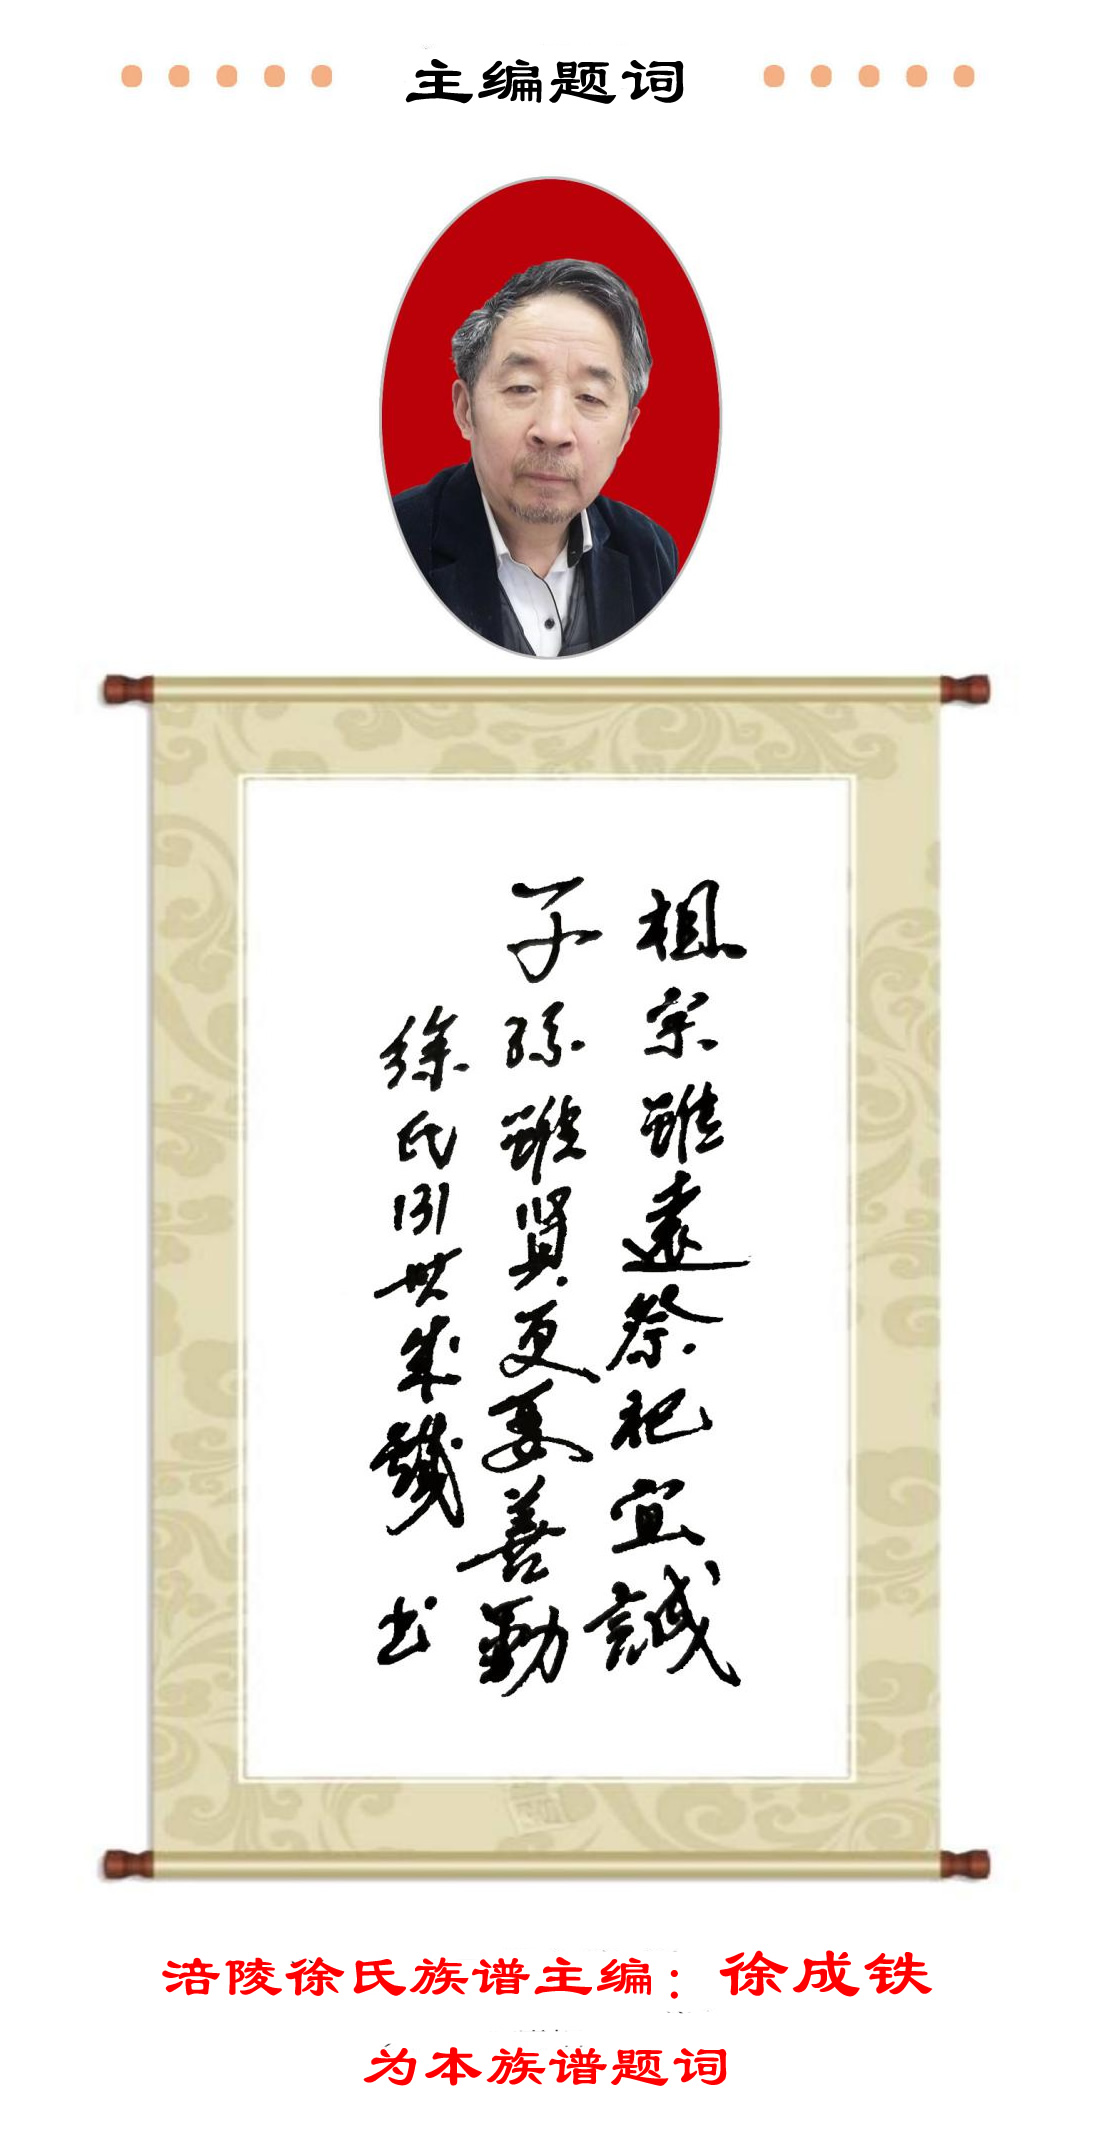 主编题词
祖宗雖遠祭祀宜誠
子孫雖賢更要善勤
徐氏131世成鐵 书
涪陵徐氏族谱主编：徐成铁
为本族谱题词